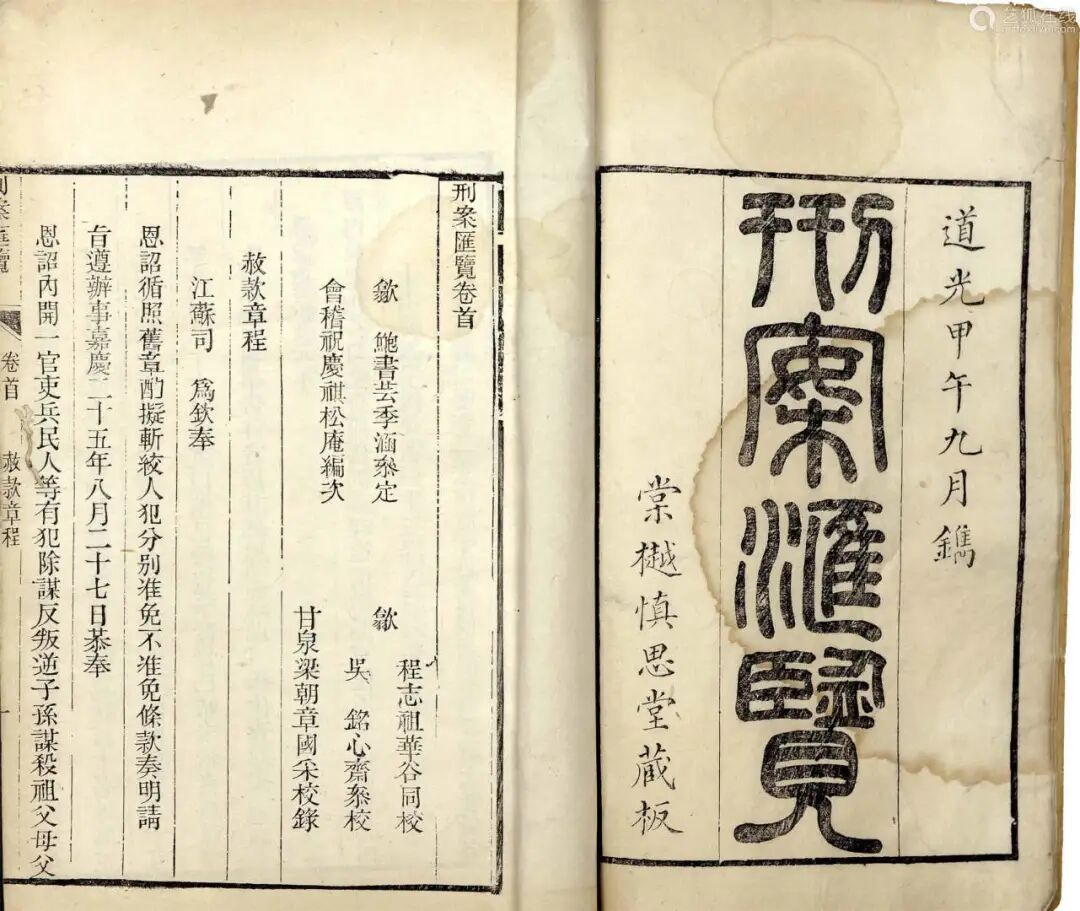 道光甲午九月鐫
刑案匯覽
棠樾慎思堂藏板
刑案匯覽卷首
歙 鮑書芸季涵叅定
會稽祝慶祺松庵編次
歙 程志祖華谷同校
吳 銘心齋叅校
甘泉梁朝章國采校錄
赦款章程
江蘇司 為欽奉
恩詔循照舊章酌擬斬絞人犯分别准免不准免條款奏明請
旨遵辦事嘉慶二十五年八月二十七日恭奉
恩詔內開一官吏兵民人等有犯除謀反叛逆子孫謀殺祖父母父
刑案匯覽 卷首 赦款章程 一
艺狐在线
artfoxlive.com